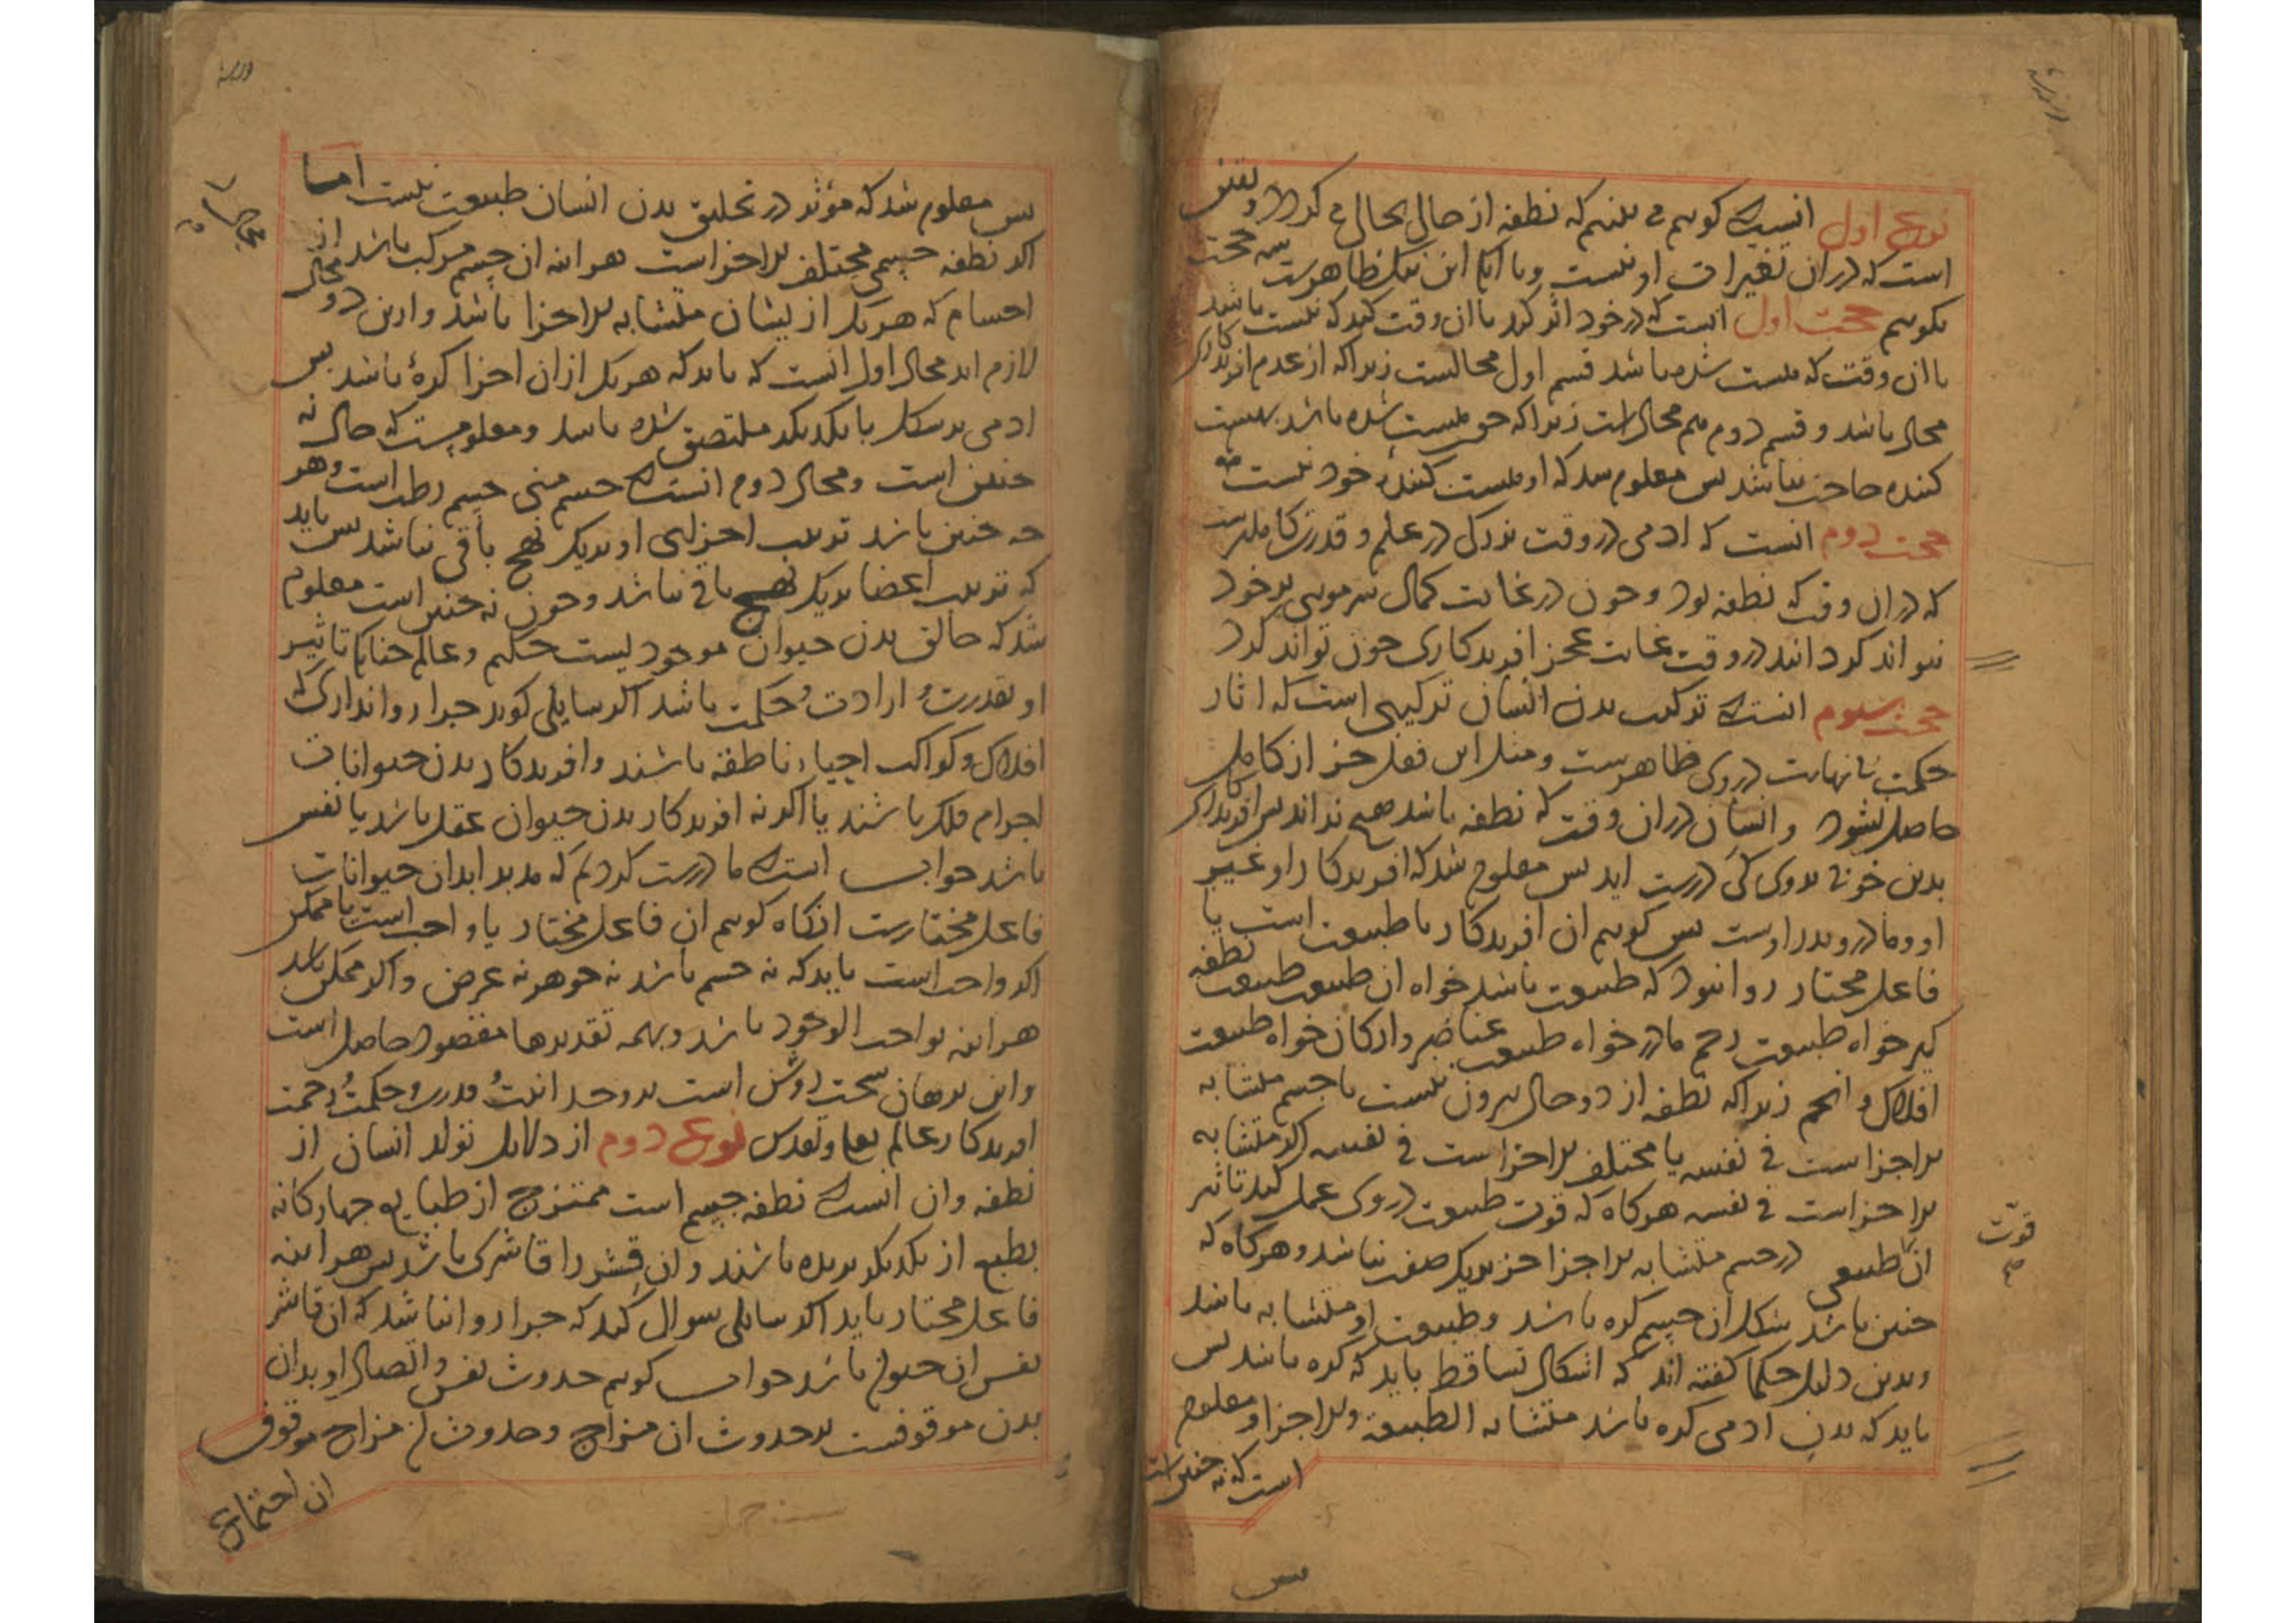 نوع اول انست که کوییم می بینیم که نطفه از حال بحال می کردد و یقین
است که در ان تغیرات او نیست و ما ایا این نیک ظاهرست سه حجت
بکوییم حجت اول انست که در خود اثر کرد یا ان وقت کند که نیست باشد
یا ان وقت که هست شده باشد قسم اول محالست زیرا که از عدم افریدکاری
محال باشد و قسم دوم هم محال است زیرا که چون هست شده باشد بهست
کننده حاجت نباشد پس معلوم شد که او هست کننده خود نیست
حجت دوم انست که ادمی در وقت بزرکی در علم و قدرت کاملترست
که در ان وقت که نطفه بود و چون در غایت کمال سر مویی بر خود
نتواند کردانید در وقت غایت عجز افریدکاری چون تواند کرد
حجت سیوم انست که ترکیب بدن انسان ترکیبی است که اثار
حکمت بی نهایت در وی ظاهرست و مثل این فعل جز از کامل
حاصل نشود و انسان در ان وقت که نطفه باشد هیچ نداند پس افریدکاری
بدین خوبی بدوی کی درست اید پس معلوم شد که افریدکار او غیر
او و مادر و پدر اوست پس کوییم ان افریدکار یا طبیعت است یا
فاعل مختار روا نبود که طبیعت باشد خواه ان طبیعت طبیعت نطفه
کیر خواه طبیعت رحم مادر خواه طبیعت عناصر و ارکان خواه طبیعت
افلاک و انجم زیرا که نطفه از دو حال بیرون نیست یا جسم متشابه
الاجزا است فی نفسه یا مختلف الاجزا است فی نفسه اکر متشابه
الاجزا است فی نفسه هر کاه که قوت طبیعت در وی عمل کند تاثیر
ان طبیعی در جسم متشابه الاجزا جز بریک صفت نباشد و هر کاه که
قوت
صح
چنین باشد شکل ان جسم کره باشد و طبیعت او متشابه باشد
و بدین دلیل حکما کفته اند که اشکال بسایط باید که کره باشد پس
باید که بدن ادمی کره باشد متشابه الطبیعة و الاجزا و معلوم
است که نه چنین است
پس
پس معلوم شد که مؤثر در تخلیق بدن انسان طبیعت نیست اما
اکر نطفه جسمی مختلف الاجزا است هر اینه ان جسم مرکب باشد از
اجسام که هر یک از یشان متشابه الاجزا باشد و ازین دو محال
لازم اید محال اول انست که باید که هر یک از ان اجزا کرهٔ باشد پس
ادمی بر شکل با یکدیکر ملتصق شده باشد و معلومست که حال نه
چنین است و محال دوم انست که جسم منی جسم رطب است و هر
چه چنین باشد ترتیب اجزای او بریک نهج باقی نباشد پس باید
که ترتیب اعضا بریک نهج باقی نباشد و چون نه چنین است معلوم
شد که خالق بدن حیوان موجودیست حکیم و عالم چنانکه تاثیر
او بقدرت و ارادت و حکمت باشد اکر سایلی کوید چرا روا نداری که
افلاک و کواکب احیاء ناطقه باشند و افریدکار بدن حیوانات
اجرام فلک باشند یا اکر نه افریدکار بدن حیوان عقل باشد یا نفس
باشد جواب انست که ما درست کردیم که مدبر ابدان حیوانات
فاعل مختارست انکاه کوییم ان فاعل مختار یا واجب است یا ممکن
اکر واجب است باید که نه جسم باشد نه جوهر نه عرض و اکر ممکن باشد
هر اینه بواجب الوجود باشد و بهمه تقدیرها مقصود حاصل است
و این برهان سخت روشن است بر وحدانیت و قدرت و حکمت و رحمت
افریدکار عالم تعالی و تقدس نوع دوم از دلایل تولد انسان از
نطفه و ان انست که نطفه جسم است ممتزج از طبایع چهار کانه
بطبع از یکدیکر بریده باشند و ان قشر را قاشری باشد پس هر اینه
فاعل مختار باید اکر سائلی سوال کند که چرا روا نباشد که ان قاشر
نفس ان حیوان باشد جواب کوییم حدوث نفس و اتصال او بدان
بدن موقوفست بر حدوث ان مزاج و حدوث ان مزاج موقوف
ان اجتماع